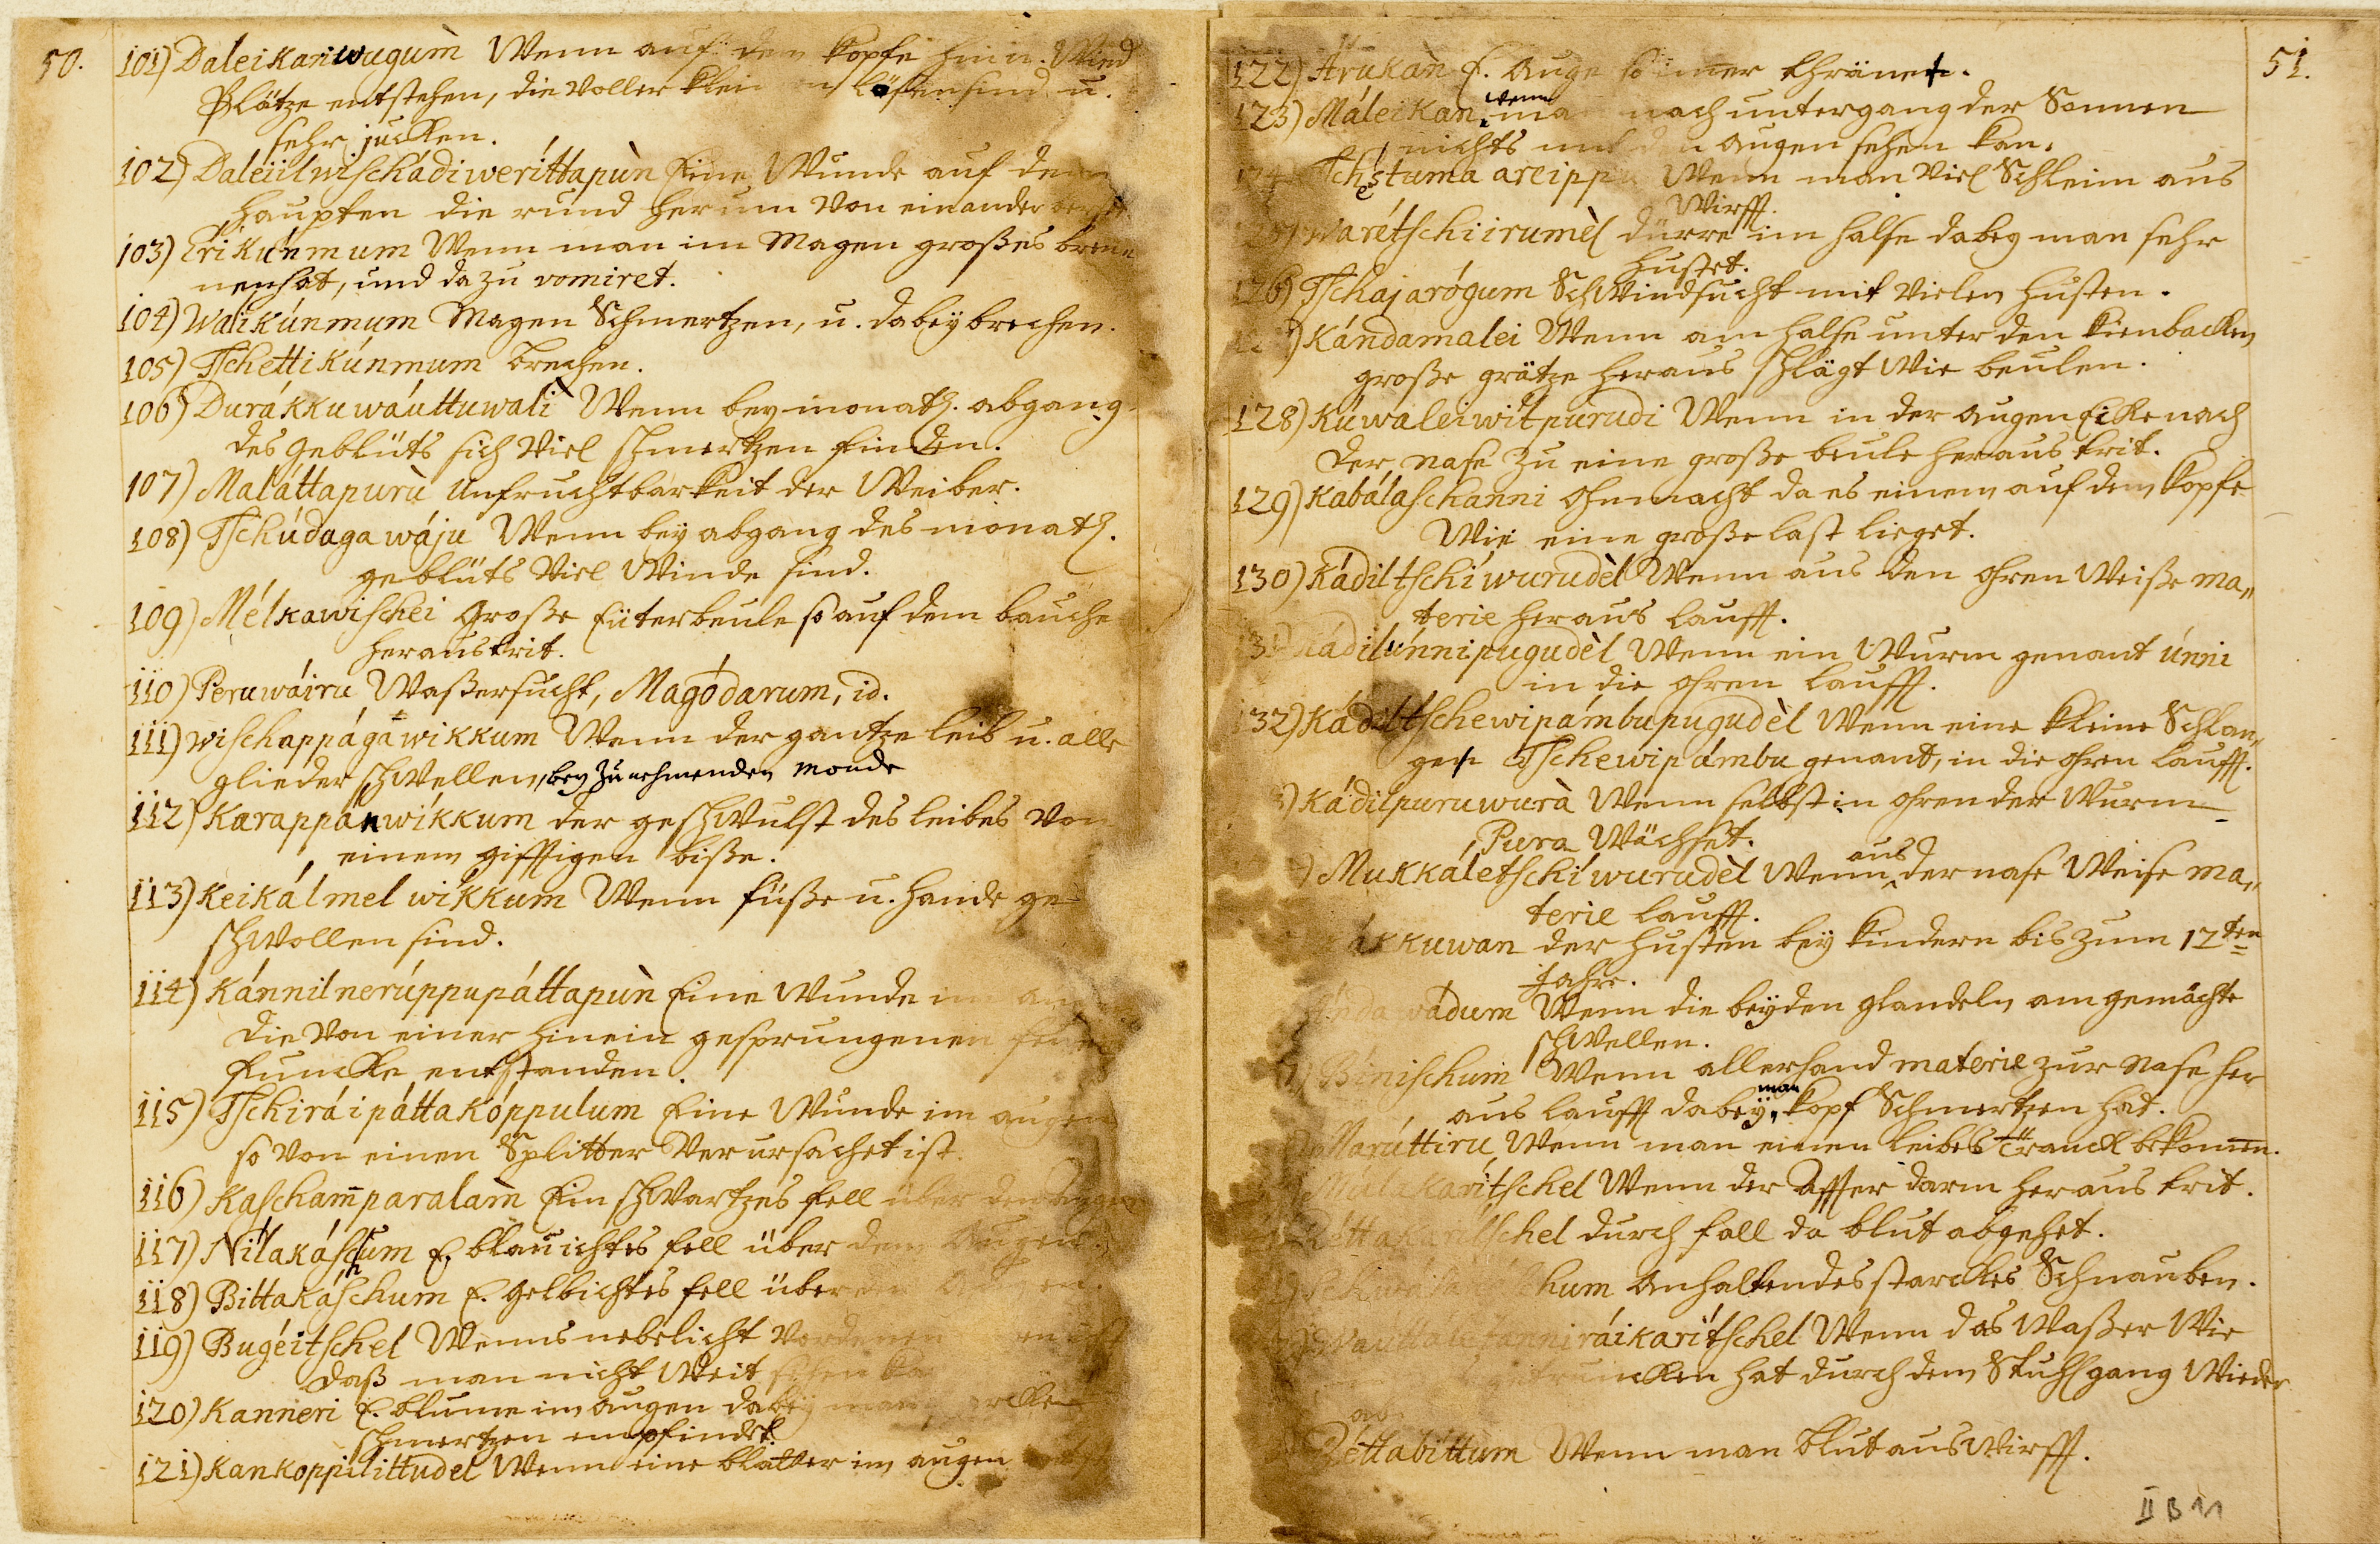 50.
101) Daleikariwugum̀ Wenn auf den Kopfe hin u. Wied
Plätze entstehen, die voller klei en Lösen sind u.
sehr jucken.
102) Daleiilwischádiweríttapùn Eine Wunde auf dem
Haupten die rund herum von einander berst
103) Erikúnmum Wenn man im Magen großes bren
nen hat, und dazu vomiret.
104) Walikúnmum Magen Schmertzen, u. dabey brechen.
105) Tschettikúnmum brechen.
106) Durákkuwáuttuwalì Wenn bey monatl. abgang
des Geblüts sich viel schmertzen finden.
107) Maláttapurù Unfruchtbarkeit der Weiber.
108) Tschúdagawáju Wenn bey abgang des monatl.
geblüts viel Winde sind.
109) Mélkawischei Große Eüterbeule so auf dem bauche
heraustrit.
110) Peruwáiru Waßersucht, Magódarum, id.
111) wischappágawikkum Wenn der gantze leib u. alle
glieder schwellen, bey zunehmenden Monde
112) Karappánwíkkum der geschwulst des leibes von
einem gifftigen biße.
113) Keikálmelwíkkum Wenn füße u. Hande ge-
schwollen sind.
114) Kánnilnerúppupáttapùn Eine Wunde im
die von einer hinein gesprungenen
Funcke entstanden.
115) Tschiráipáttakóppulum Eine Wunde im augen
so von einen Splitter verursachet ist.
116) Kascham̄paralam̀ Ein schwartzes fell über den Augen
117) Nílakáschum E. blauichtes fell über den Augen.
118) Bittakáschum E. gelbichtes fell über en.
119) Bugéitschel Wenns nebelicht vor denen
daß man nicht Weit sehen ka
120) Kanneri E. blume im Augen dabey man
schmertzen empfindet.
121) Kankoppilittudel Wenn eine blatter im augen
51.
122) Arukàn E. Auge so im̄er thränet.
123) Máleikan, wenn man nach untergang der Sonnen
nichts mit den Augen sehen kan.
Tschéstuma areipp Wenn man viel Schleim aus
Wirfft.
Warétschiirumèl dürre im halse dabey man sehr
hustet.
126) Tschajarógum Schwindsucht mit vielen husten.
Kándamalei Wenn am halse unter den Kienbacken
große grätze heraus schlägt wie beulen.
128) Kúwaleiwitpurudi Wenn in der Augen Ecke nach
der Nase zu eine große beule heraus trit.
129) Kabálaschanni Ohnmacht da es einem auf dem Kopfe
Wie eine große last lieget.
130) Kádiltschíwurudèl Wenn aus den Ohren Weiße ma„
terie heraus laufft.
Kádilúnnipugudèl Wenn ein Wurm genant únni
in die Ohren laufft.
132) Kádiltschewipámbupugudèl Wenn eine kleine Schlan„
gen Tschewipámbu genant, in die Ohren laufft.
Kádilpuruwurà Wenn selbst in Ohren der Wurm
Pura Wächset.
Mukkáletschíwurudèl Wenn aus der nase Weise ma„
terie laufft.
ákkuwan der husten bey Kindern bis zum 12ten
Jahre.
wádum Wenn die beyden glandeln am gemächte
schwellen.
Bínischum Wenn allerhand materie zur Nase her
aus laufft dabey man Kopf Schmertzen hat.
Marúttiru Wenn man einen liebes Tranck bekom̄en.
karítschel Wenn der Affter darm heraus trit.
Réttakarítschel durch fall da blut abgehet.
hum Anhaltendes starckes Schnauben.
tanniráikarítschel Wenn das Waßer Wie
truncken hat durch dem Stuhlgang Wieder
ab
Réttabíttum Wenn man blut aus Wirfft.
II B 11